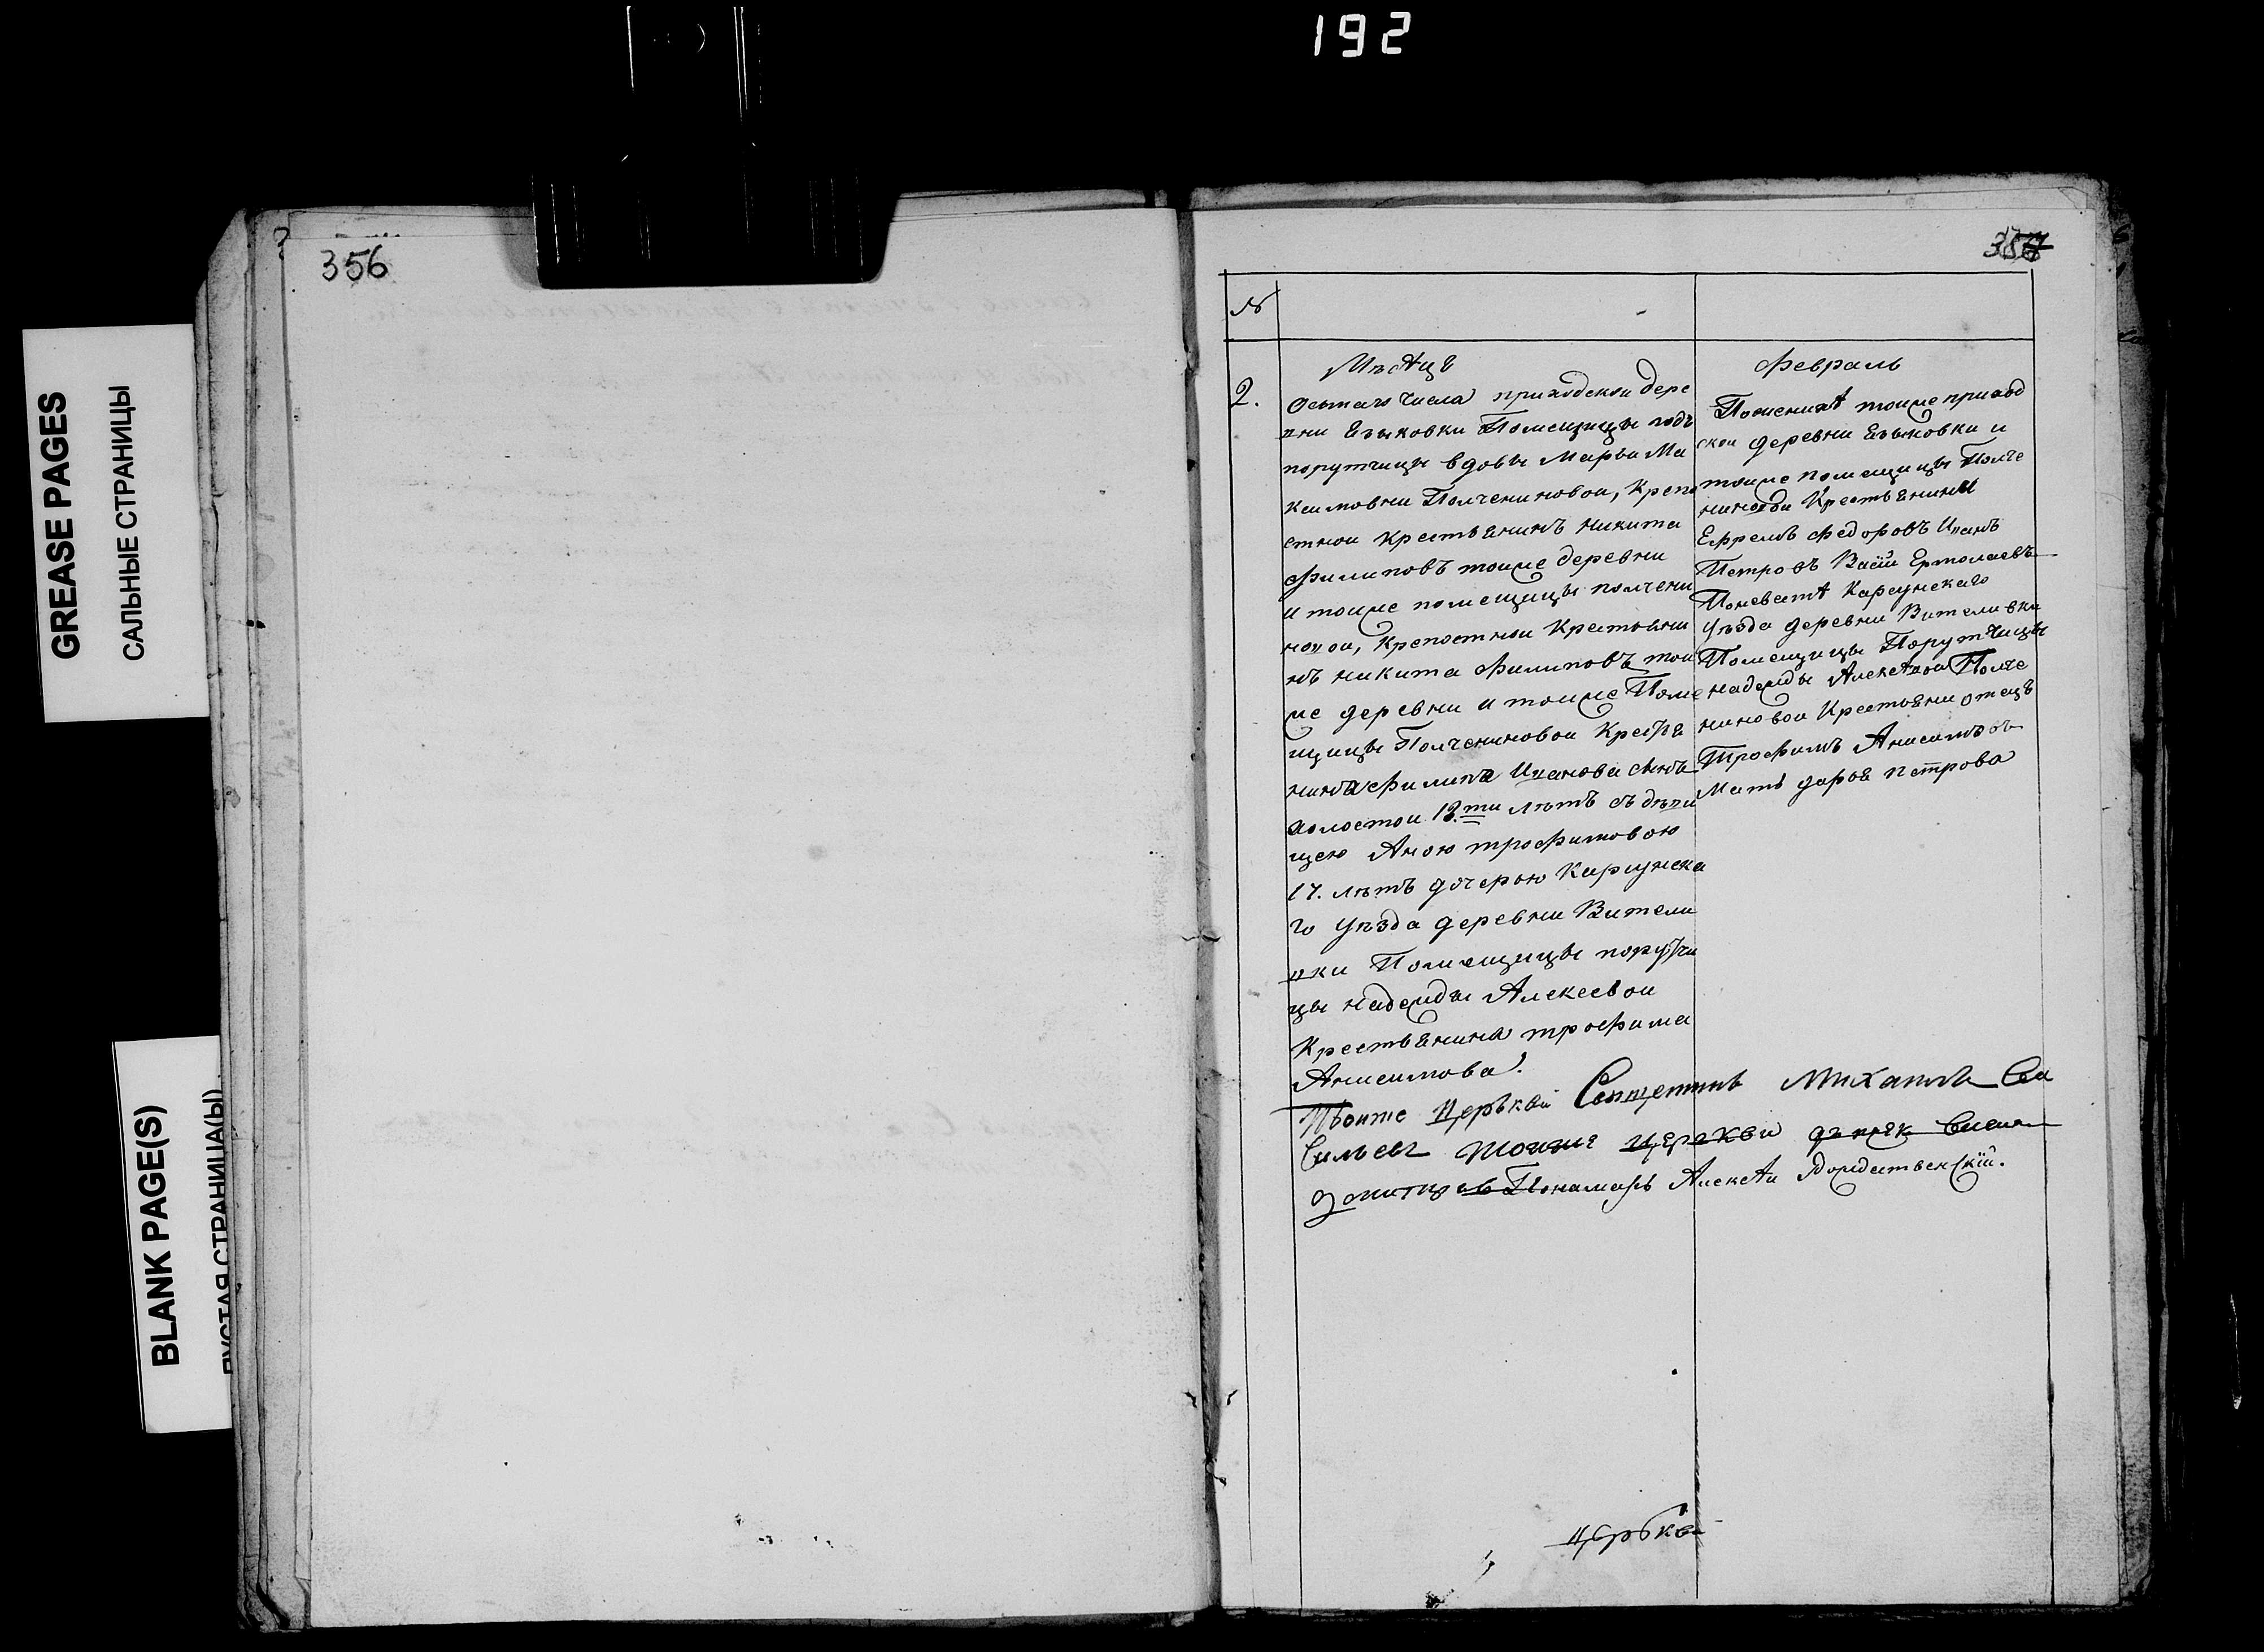 192
GREASE PAGES
САЛЬНЫЕ СТРАНИЦЫ
BLANK PAGE(S)
ПУСТАЯ СТРАНИЦА(Ы)
356
№
Мѣсяцъ
2.
Осьмаго числа приходской дере
вни Езыковки Помещицы подъ
порутчицы вдовы Марьи Ма
ксимовни Полчениновои, Крепо
стнои крестьянинъ никита
филиповъ тоиже деревни
и тоиже помещицы полчени
новои, крепостнои крестьяни
нъ никита филиповъ тои
же деревни и тоиже Поме
щицы Полчениновои Крестья
нина филипа Иванова сынъ
холостои 18.ти лѣтъ съ дѣви
цею Аною трофимовою
17. лѣтъ дочерью Карсунска
го уѣзда деревни Вители
вки Помещицы порутчи
цы надежды Алексеевои
Крестьянина трофима
Анисимова.
февраль
Поженихѣ тоиже приход
скои деревни Езыковки и
тоиже помещицы Полче
ниновои Крестьянины
Ефремъ федоровъ Иванъ
Петровъ Васіи Ермолаевъ
Поневестѣ Карсунскаго
уѣзда деревни Вителивки
Помещицы Порутчицы
надежды Алексѣвои Полче
ниновои Крестьяни отецъ
Трофимъ Анисимовъ
Мать дарья петрова
Тоиже Церькви Священникъ Михаилъ Ва
сильевъ тоиже церькви дьячек
дмитриевъ Понамарь Алексѣи Рождественскій.
церькви